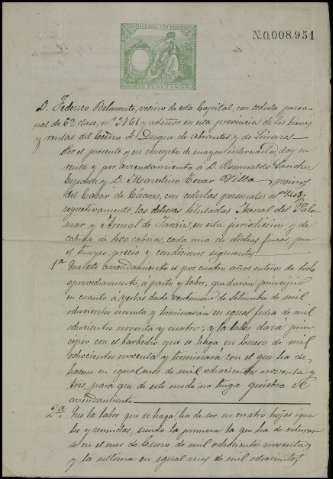 N.0.008.951
D. Federico Belmonte, vecino de esta Capital, con cedula perso-
nal de 6ª clase, nº 2761 y
y rentas del Excmo. S. Duque de Abrantes y de Linares
Por el presente y en concepto de mayordomo doy en
renta y por arrendamiento a D. Romualdo Sanchez
y D. Maximino Tovar Villa vecinos
del Casar de Cáceres, con cedulas personales
respectivamente, las dehesas tituladas Arenal del Palo-
mar y Arenal de en esta jurisdiccion y de
cabida de cien cabras, cada una de dichas fincas, por
el tiempo, precio y condiciones siguientes:
1ª Que este arrendamiento es por cuatro años enteros de todo
aprovechamiento, á pasto y labor, que daran principio
en cuanto á yerbas desde veintinueve de Setiembre de mil
ochocientos noventa y terminaran en igual fecha de mil
ochocientos noventa y cuatro; y la labor dara prin-
cipio con el barbecho que se haga en Enero de mil
ochocientos noventa y terminara con el que ha de
hacerse en igual mes de mil ochocientos noventa y
tres, para que de este modo no tenga quiebra el
arrendamiento.
2ª Que la labor que se haga ha de ser en cuatro hojas igua-
les y seguidas, siendo la primera la que ha de
en el mes de Enero de mil ochocientos noventa,
y la ultima en igual mes de mil ochocientos